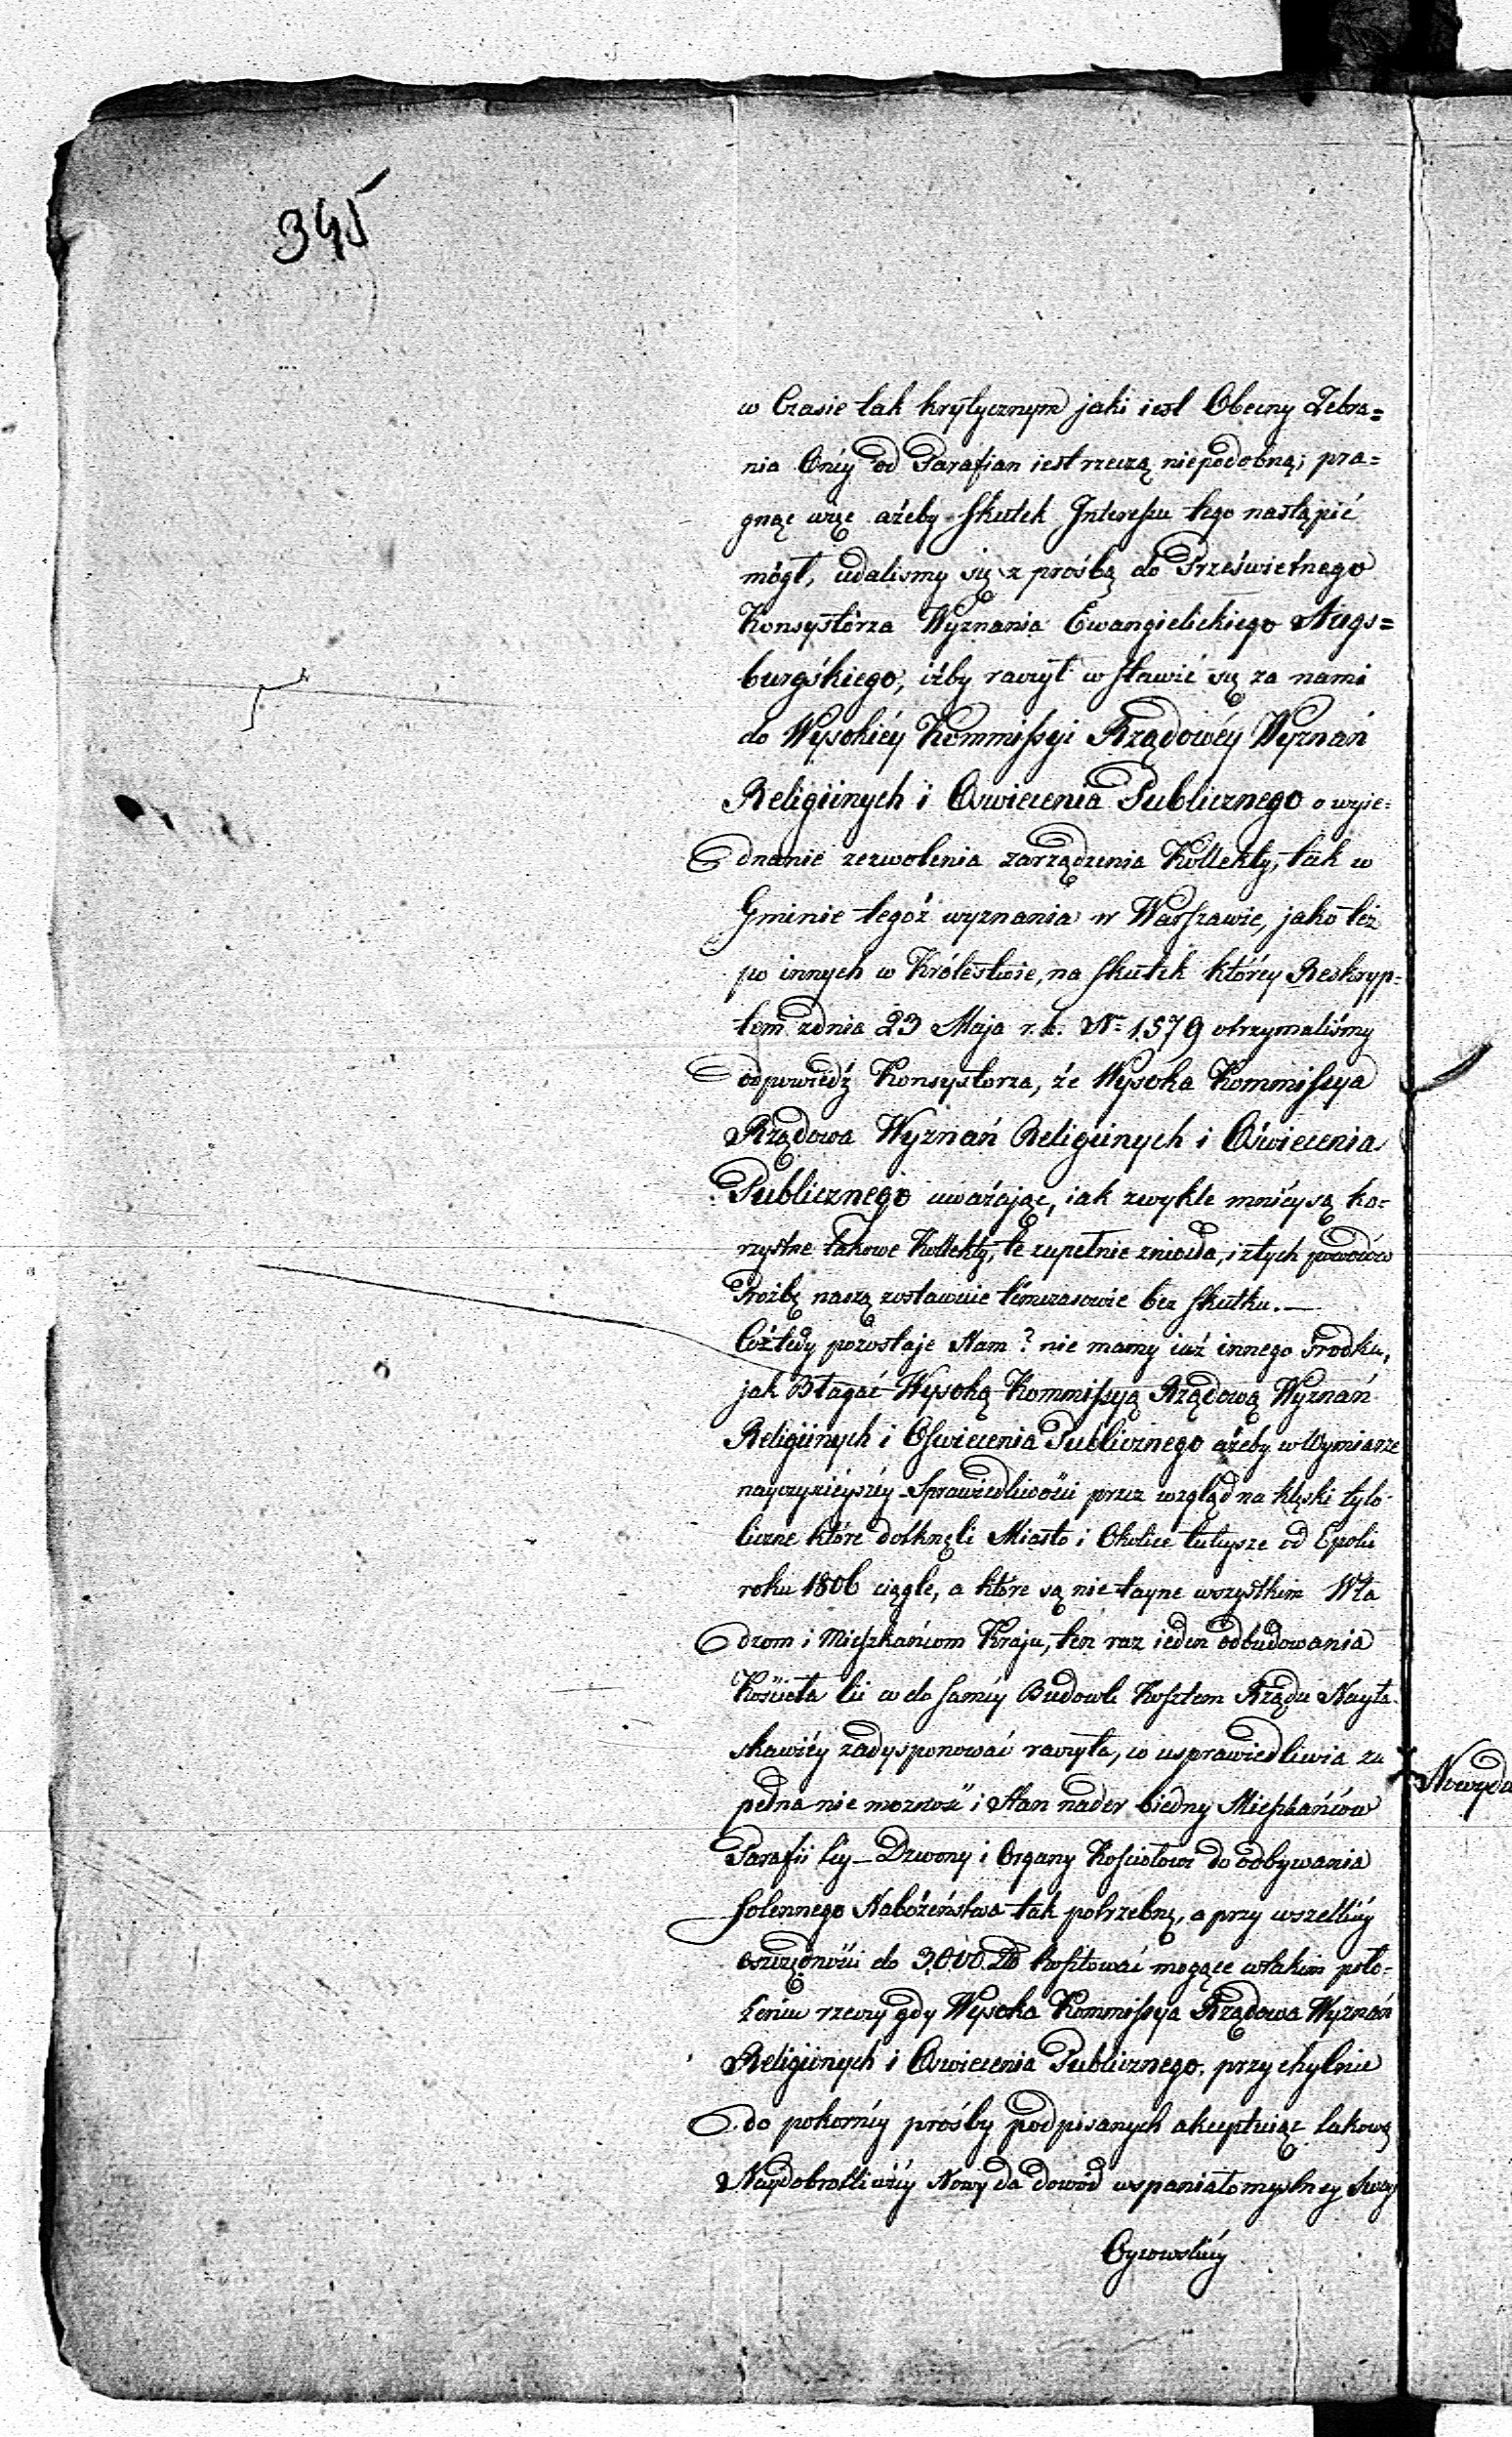 345
w Czasie tak krytycznym jaki iest Obecny Zebra=
nia Onéy od Parafian iest rzeczą niepodobną; pra=
gnąc więc ażeby skutek Interessu tego nastąpić
mógł, udalismy się z prośbą do Prześwietnego
Konsystórza Wyznania Ewangielickiego Augs=
burgśkiego, iżby raczył wstawić się za nami
do Wysokiéy Kommissyi Rządowéy Wyznań
Religiinych i Oswiecenia Publicznego o wyie=
dnanie zezwolenia zarządzenia Kollekty, tak w
Gminie tegóż wyznania w Warszawie, jako też
po innych w Królestwie, na skutek któréy Reskryp-
tem zdnia 23 Maja r. b. No 1,579 otrzymaliśmy
odpowiedź Konsystorza, że Wysoka Kommissya
Rządowa Wyznań Religiinych i Oświecenia
Publicznego uważając, iak zwykle mniéy są ko-
rzystne takowe Kollekty, te zupełnie zniosła, i z tych powodów
Prożbę naszą zostawuie témczasowie bez skutku. —
Cóż tedy pozostaje Nam? nie mamy iuż innego srodku,
jak Błagać Wysoką Kommissyą Rządową Wyznań
Religiinych i Oswiecenia Publicznego ażeby w Wymiarze
nayczyściéyszéy Sprawiedliwości przez wzgląd na klęski tylo-
liczne które dotknęli Miasto i Okolice tutysze od Epoki
roku 1806 ciągle, a które są nie tayne wszystkim Wła
dzom i Mieszkańcom Kraju, ten raz ieden odbudowania
Kościoła w do saméy Budowli Kosztem Rządu Nayła-
skawiéy zadysponować raczyła, co usprawiedliwia zu
pełna nie możność i Stan nader biedny Mieszkańców
Parafii téy — Dzwony i Organy Kościołowi do odbywania
solennego Nabożeństwa tak potrzebne, a przy wszelkiéy
oszczędności do 3,000 Kosztować mogące w takim poło-
żeniu rzeczy gdy Wysoka Kommissya Rządowa Wyznań
Religiinych i Oswiecenia Publicznego, przychylnie
do pokornéy prośby podpisanych akceptuiąc takową
Naydobrotliwiéy Nowy da dowód wspaniałomyslney swey
Oycowskiéy
Nowy da